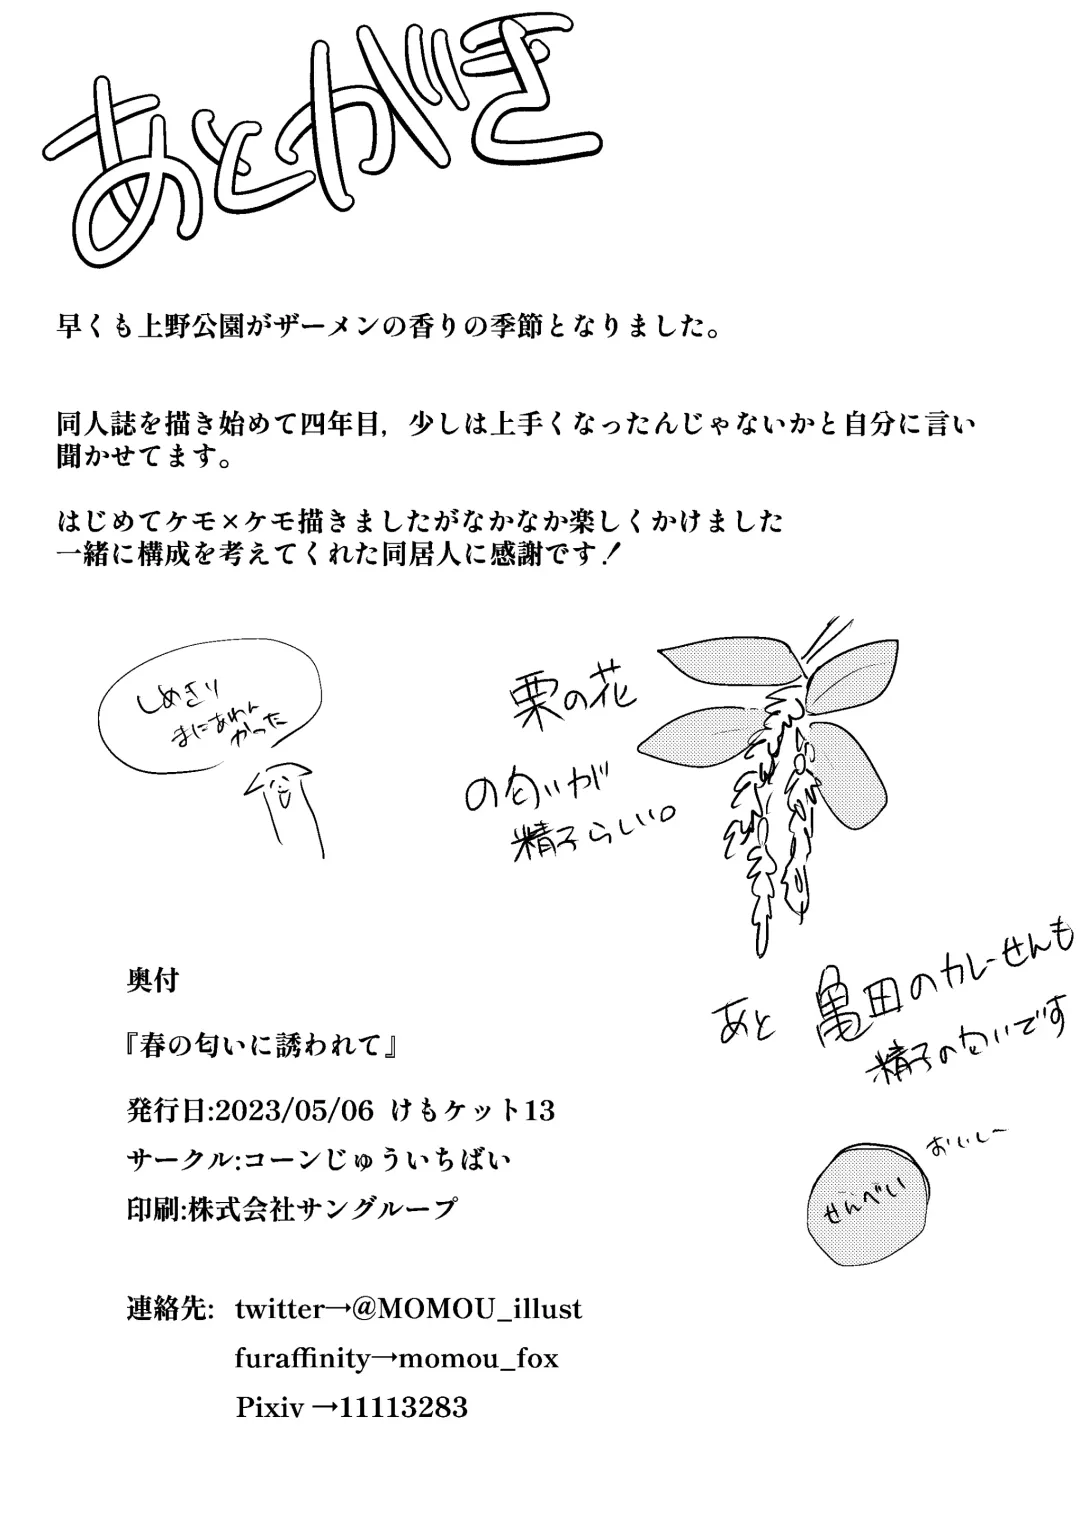 あとがき
早くも上野公園がザーメンの香りの季節となりました。
同人誌を描き始めて四年目，少しは上手くなったんじゃないかと自分に言い
聞かせてます。
はじめてケモ×ケモ描きましたがなかなか楽しくかけました
一緒に構成を考えてくれた同居人に感謝です！
しめきり
まにあわん
かった
栗の花
の匂いが
精子らしい。
あと 亀田のカレーせんも
精子の匂いです
おいし〜
せんべい
奥付
『春の匂いに誘われて』
発行日:2023/05/06 けもケット13
サークル:コーンじゅういちばい
印刷:株式会社サングループ
連絡先: twitter→@MOMOU_illust
furaffinity→momou_fox
Pixiv→11113283